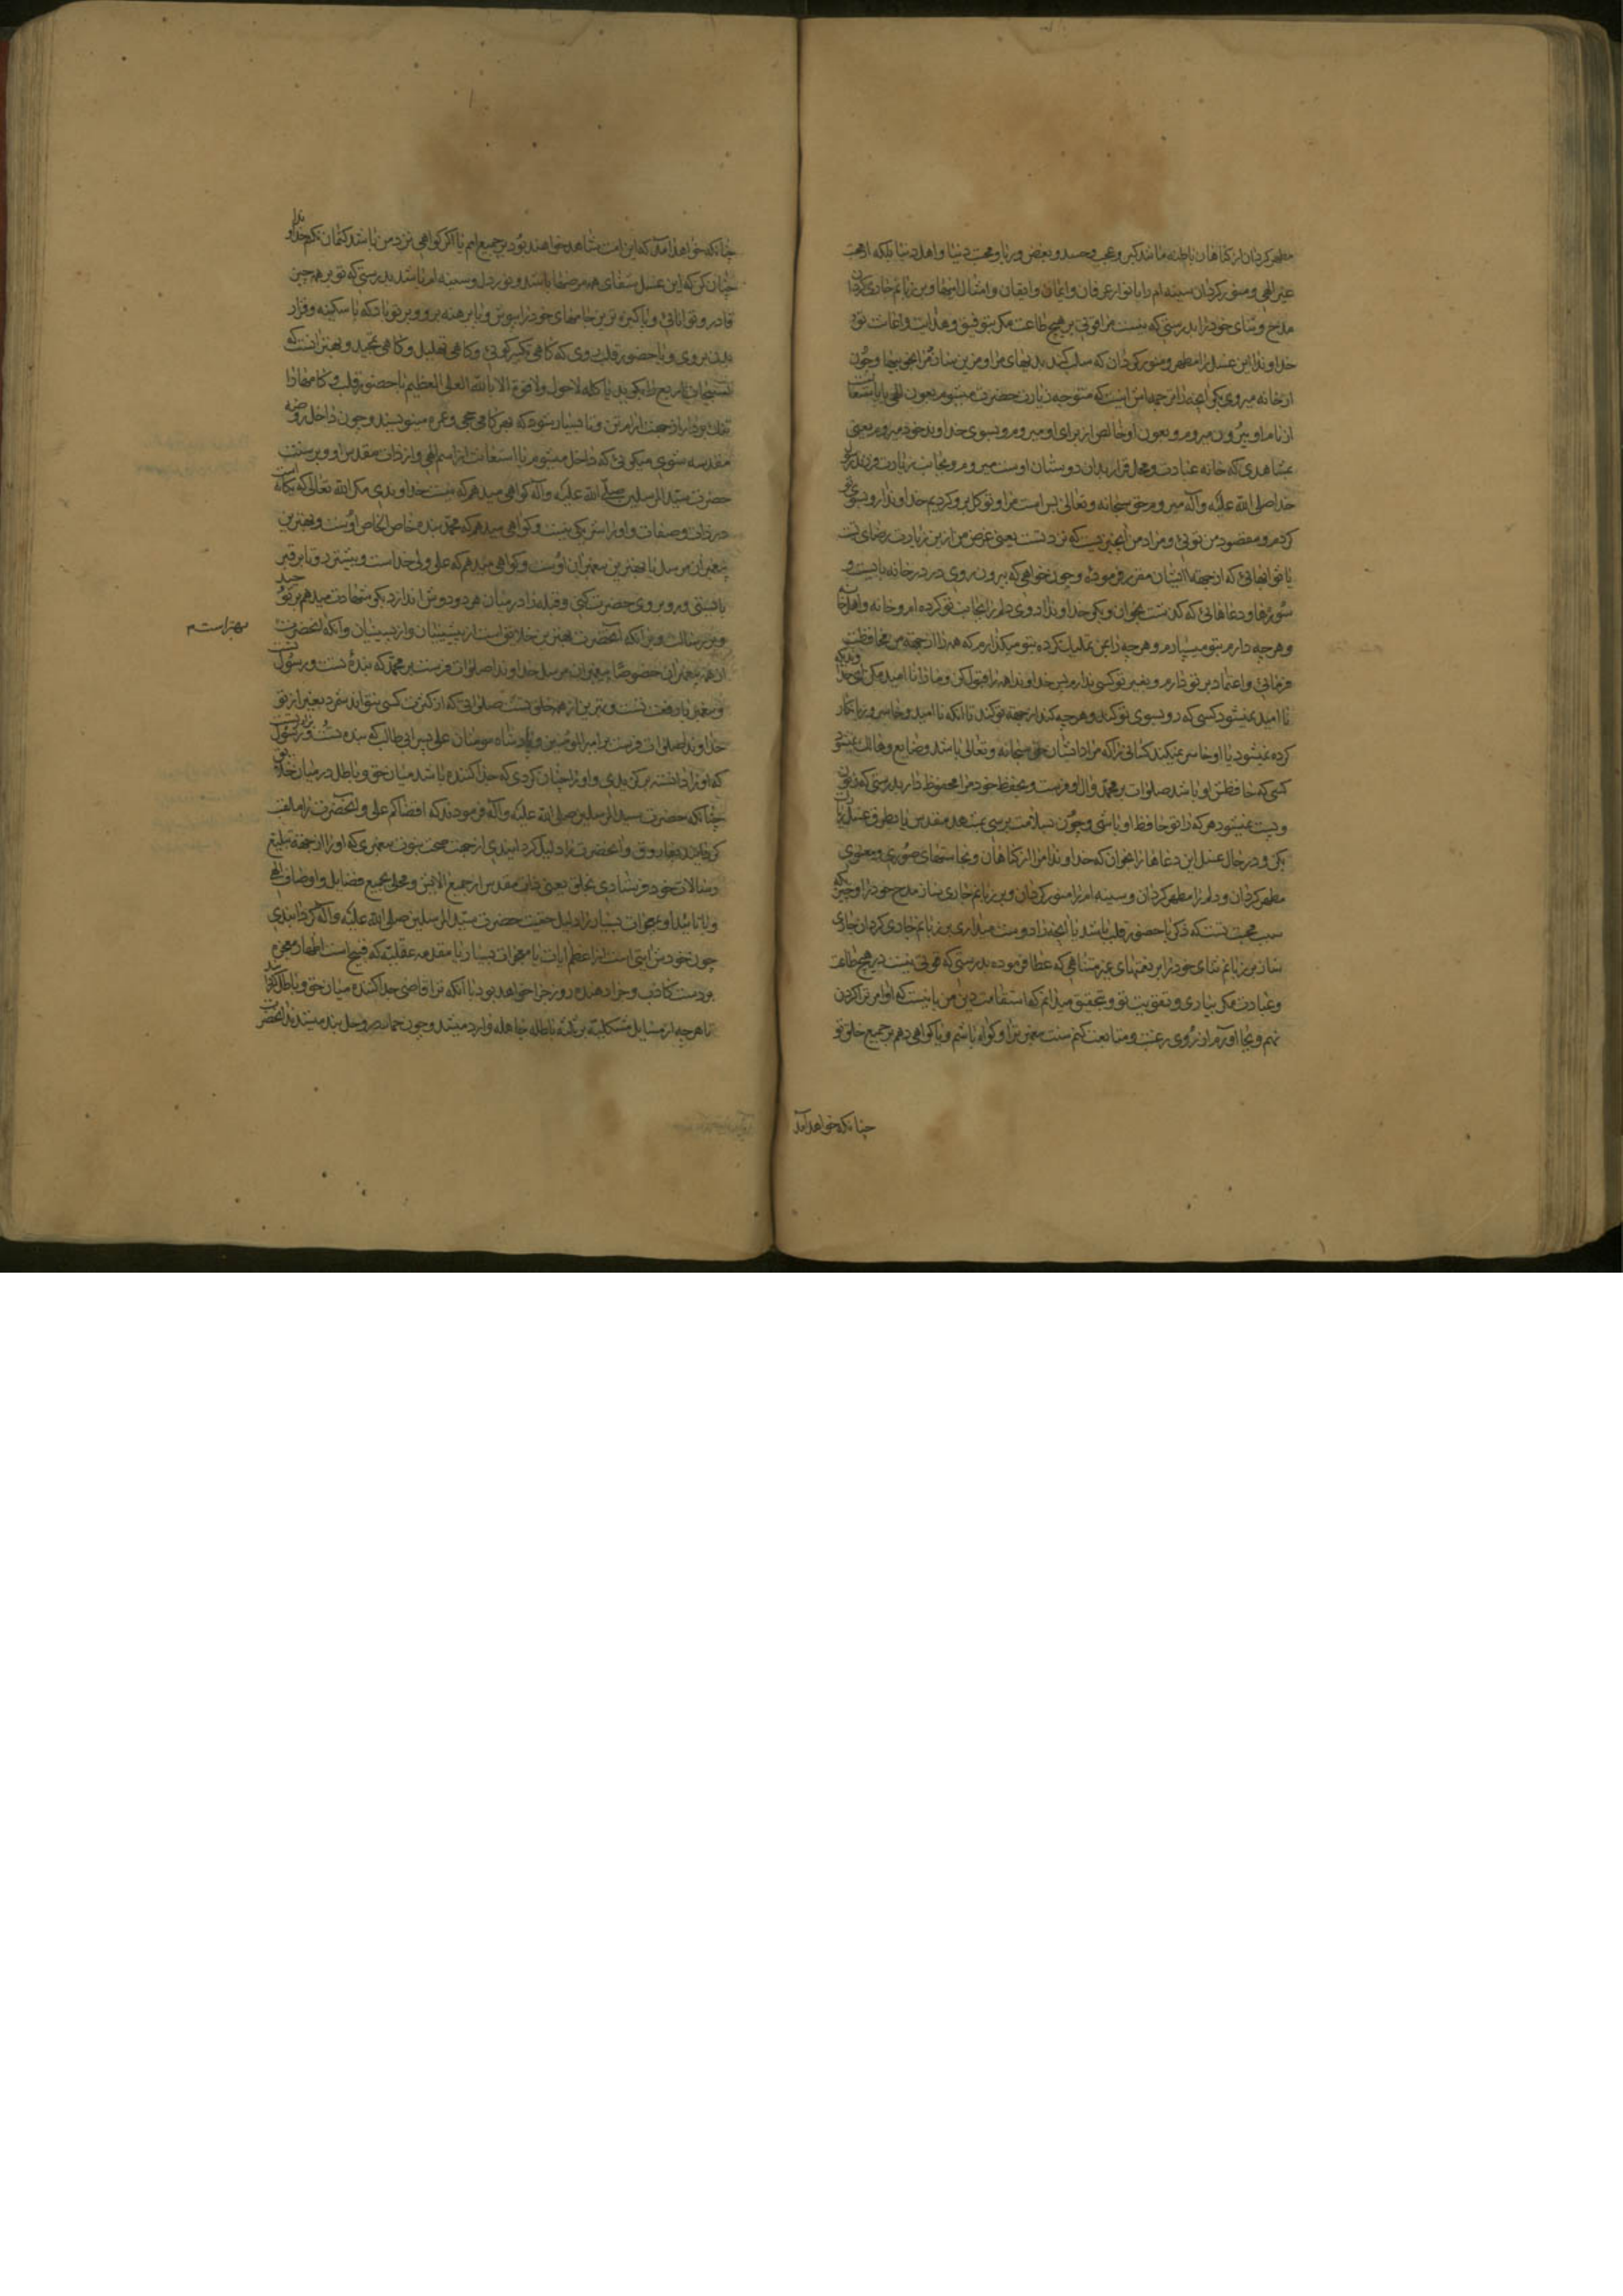 مطهر کردان از کناهان باطنه مانند کبر و عجب و حسد و بغض و ریا و محبت دنیا و اهل دنیا بلکه از محبت
غیر الهی و منور کردان سینه ام را بانوار عرفان و ایمان و ایقان و امثال اینها و بر زبانم جاری کردان
مدح و ثنای خود را بدرستی که نیست مرا قوتی بر هیچ طاعت مکر بتوفیق و هدایت و اعانت تو
خداوندا این غسل را مطهر و منور کردان که سلب کند بدیهای مرا و چون
از خانه میروی بکو آنچه را ترجمه اش اینست که متوجه زیارت حضرت میشوم بعون الهی یا باستعانت
از نام او بیرون میروم و بعون او خالص از برای او میروم و بسوی خداوند خود میروم یعنی
بمشاهدی که خانه عبادت و محل قرار بدان دوستان اوست میروم و بجانب زیارت فرزند رسول
خدا صلی الله علیه و آله میروم حق سبحانه و تعالی بس است مرا و توکل برو کردیم خداوندا رو بسوی تو
کردم و مقصود من توئی و مراد من آن چیزیست که نزد تست یعنی غرض من ازین زیارت رضای تست
یا ثوابهائی که از جهة ایشان مقرر فرموده و چون خواهی که بیرون روی در در خانه بایست و
سورها و دعاهائی که کذشت بخوان و بکو خداوندا روی دلم را بجانب تو کرده ام و خانه و اهل خانه
و هر چه دارم بتو میسپارم و هر چه را بمن تملیک کرده بتو میکذارم که همه را از جهة من محافظت
فرمائی و اعتماد بر تو دارم و بغیر تو کسی ندارم پس خداوندا همه را قبول کن و ما را نا امید مکن ای خداوندیکه
نا امید نمیشود کسی که رو بسوی تو کند و هر چه کند از جهة تو کند تا آنکه نا امید و خاسر و زیانکار
کرده نمیشود یا او خاسر نمیکند کسانی را که مراد ایشان حق سبحانه و تعالی باشد و ضایع و هالک نمیشود
کسی که حافظش او باشد صلوات بر محمد و آل او فرست و بحفظ خود مرا محفوظ دار بدرستی که زبون
و پست نمیشود هر که را تو حافظ او باشی و چون بسلامت برسی بمشهد مقدس
بکن و در حال غسل این دعاها را بخوان که خداوندا مرا از کناهان و نجاستهای صوری و معنوی
مطهر کردان و دلم را مطهر کردان و سینه ام را منور کردان و بر زبانم جاری ساز مدح خود را و چیزی که
سبب محبت تست که ذکر با حضور قلب باشد یا آنچه را دوست میداری بر زبانم جاری کردان جاری
ساز بر زبانم ثنای خود را بر نعمتهای غیر متناهی که عطا فرموده بدرستی که قوتی نیست در هیچ طاعت
و عبادت مکر بیاری و تقویت تو و بتحقیق میدانم که استقامت دین من بآنیست که اوامر ترا کردن
نهم و بجا آورم از روی رغبت و متابعت کنم سنت پیغمبر ترا و کواه باشم و یا کواهی دهم بر جمیع خلق تو
چنانکه خواهد آمد
چنانکه خواهد آمد که این امت شاهد خواهند بود بر جمیع امم یا اکر کواهی نزد من باشد کتمان نکنم خداوندا
چنان کن که این غسل شفای هر مرضها باشد و نور دل و سینه ام باشد بدرستی که تو بر همه چیز
قادر و توانائی و پاکیزه ترین جامهای خود را بپوش و پا برهنه برو و بر تو باد که با سکینه و وقار
بدن بروی و با حضور قلب روی که کاهی تکبیر کوئی و کاهی تهلیل و کاهی تمجید و بهتر آنست که
تسبیحات اربع را بکوید با کلمه لا حول ولا قوة الا بالله العلی العظیم با حضور قلب و کامها را
تنک بردار از جهت آرام تن و تا بسیار شود که بهر کامی حجی و عمره مینویسند و چون داخل روضه
مقدسه شوی میکوئی که داخل میشوم با استعانت از اسم الهی و از ذات مقدس او و بر سنت
حضرت سید المرسلین صلی الله علیه و آله کواهی میدهم که نیست خداوندی مکر الله تعالی که یکانه است
در ذات و صفات و او را شریکی نیست و کواهی میدهم که محمد بنده خاص الخاص اوست و بهترین
پیغمبران مرسل یا بهترین پیغمبران اوست و کواهی میدهم که علی ولی خداست و پیشتر رو تا بر قبر
بایستی و رو بروی حضرت کنی و قبله را در میان هر دو دوش انداز و بکو شهادت میدهم بر توحید
و بر رسالت و بر آنکه آنحضرت بهترین خلایق است از پیشینیان و از پسینیان و آنکه آنحضرت
بهتر است م
از همه پیغمبران خصوصا پیغمبران مرسل خداوندا صلوات فرست بر محمد که بنده تست و رسول تست
و پیغمبر با رفعت تست و بهترین از همه خلق تست صلواتی که از کثرت کسی نتواند شمرد بغیر از تو
خداوندا صلوات فرست بر امیر المومنین و پادشاه مومنان علی پسر ابی طالب که بنده تست و برادر رسول تست
که او را دانسته برکزیدی و او را چنان کردی که جدا کننده باشد میان حق و باطل در میان خلایق
چنانکه حضرت سید المرسلین صلی الله علیه و آله فرمودند که اقضاکم علی و آنحضرت را ملقب
کردانیدند بفاروق و آنحضرت را دلیل کردانیدی از جهت صحت نبوت پیغمبری که او را از جهة تبلیغ
رسالات خود فرستادی بخلق یعنی ذات مقدس از جمیع و محلی بجمیع فضایل و اوصاف الهی
و با تایید او بمعجزات بسیار را دلیل حقیت حضرت سید المرسلین صلی الله علیه و آله کردانیدی
چون خودش آیتی است از اعظم آیات با معجزات بسیار با مقدمه عقلیه که قبیح است اظهار معجزه
بر دست کاذب و جزا دهنده روز جزا خواهد بود با آنکه ترا قاضی جدا کننده میان حق و باطل
تا هر چه از مسایل مشکله بر ائمه باطله جاهله وارد میشد و چون در وحل بند میشدند آنحضرت